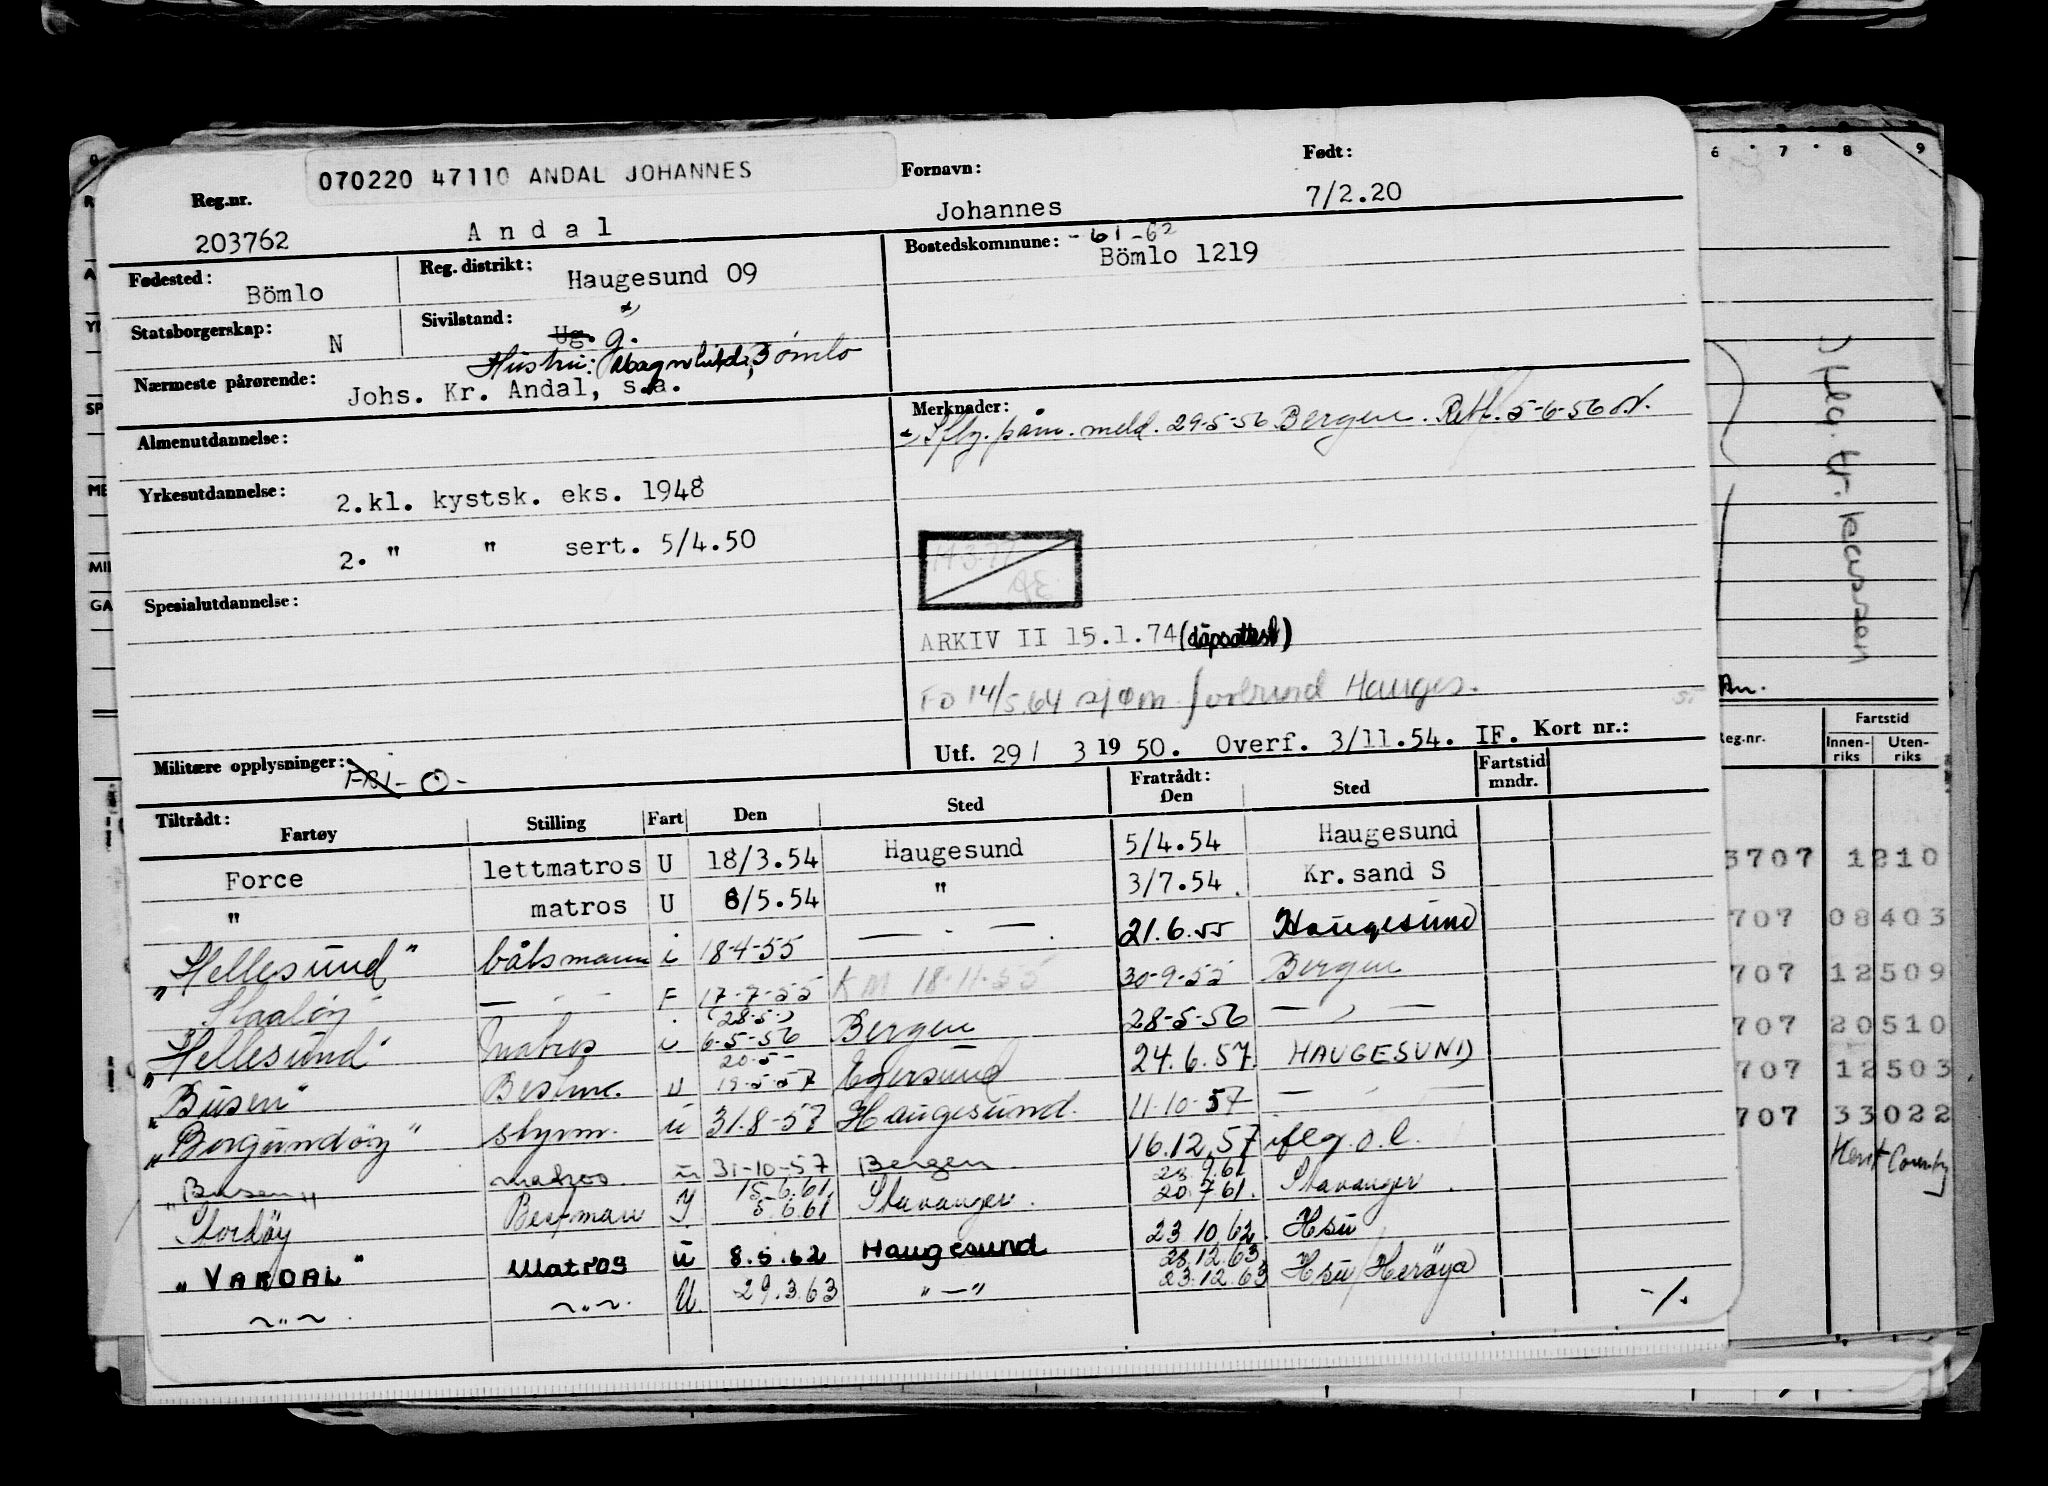 070220 47110 ANDAL JOHANNES
Reg.nr. Fornavn: Født:
203762 Andal Johannes 7/2.20
Fødested: Bömlo Reg. distrikt: Haugesund 09 Bostedskommune: -61-62 Bömlo 1219
Statsborgerskap: N Sivilstand: Ug. g.
Hustru: Magnhild, Bömlo
Nærmeste pårørende: Johs. Kr. Andal, s.a.
Almenutdannelse: Merknader:
Iflg. påm. meld. 29-5-56 Bergen. Rett. 5-6-56
Yrkesutdannelse: 2.kl. kystsk. eks. 1948
2. " " sert. 5/4.50
14.3.77
Spesialutdannelse:
ARKIV II 15.1.74 (dåpsattest)
FD 14/5.64 sjøm. forbund Hauges.
Utf. 29/ 3 1950. Overf. 3/11.54. IF. Kort nr.:
Militære opplysninger: FRI - O -
Tiltrådt: Fratrådt: Fartstid mndr.
Fartøy Stilling Fart Den Sted Den Sted
Force lettmatros U 18/3.54 Haugesund 5/4.54 Haugesund
" matros U 8/5.54 " 3/7.54. Kr.sand S
"Hellesund" båtsmann i 18-4-55 — " — 21.6.55 Haugesund
— " — F 17-7-55 KM 18-11-55 30-9-55 Bergen
(28.5.)
"Hellesund" matros i 6-5-56 Bergen 28-5-56 — " —
20.5-
"Busen" Bestm. U 19-5-57 Egersund 24.6.57. HAUGESUND
"Borgundöy" styrm. u 31.8-57 Haugesund. 11-10-57 — " —
"Busen" matros u 31-10-57 Bergen 16.12.57 iflg. o.l.
15.6.61 23.9.61
Stordöy Bestmann I 5.6.61 Stavanger. 20.7.61. Stavanger.
"VARDAL" Matros u 8.5.62 Haugesund 23 10 62. Hsu
28.12.63
~"~ ~"~ U. 29.3.63 "—" 23.12.63 Hsu/Herøya
-/.
6 7 8 9
An.
Reg.nr. Fartstid
Innenriks Utenriks
3707 1210
707 08403
707 12509
707 20510
707 12503
707 33022
Kent County